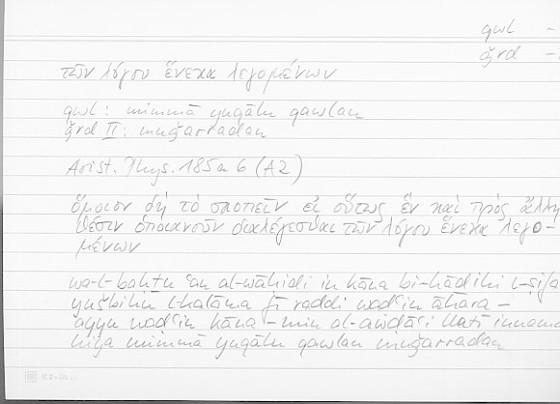 qwl –
ǧrd –
τῶν λόγου ἕνεκα λεγομένων
qwl : mimmā yuqālu qawlan
ǧrd II : muǧarradan
Arist. Phys. 185a6 (A2)
ὅμοιον δὴ τὸ σκοπεῖν εἰ οὕτως ἓν καὶ πρὸς ἄλλη
θέσιν ὁποιανοῦν διαλέγεσθαι τῶν λόγου ἕνεκα λεγο–
μένων
wa-l-baḥtu ʿan al-wāḥidi in kāna bi-hādihi ṣ-ṣifa
yušbihu l-kalāma fī raddi waḍʿin āḫara –
ayyu waḍʿin kāna – min al-awḍāʿi llatī innamā
hiya mimmā yuqālu qawlan muǧarradan